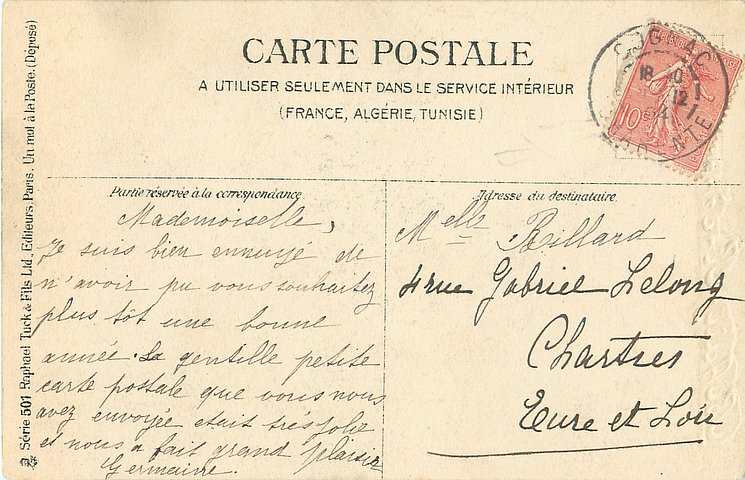 CARTE POSTALE
A UTILISER SEULEMENT DANS LE SERVICE INTÉRIEUR
(FRANCE, ALGÉRIE, TUNISIE)
COGNAC
18
12
CHARENTE
10c
Série 501 Raphael Tuck & Fils Ltd, Editeurs, Paris. Un mot à la Poste. (Déposé)
Partie réservée à la correspondance
Mademoiselle,
Je suis bien ennuyé de
n'avoir pu vous souhaitez
plus tôt une bonne
année. La gentille petite
carte postale que vous nous
avez envoyée etait très jolie
et nous a fait grand plaisir
Germaine.
Adresse du destinataire.
Melle Billard
4 rue Gabriel Lelong
Chartres
Eure et Loir